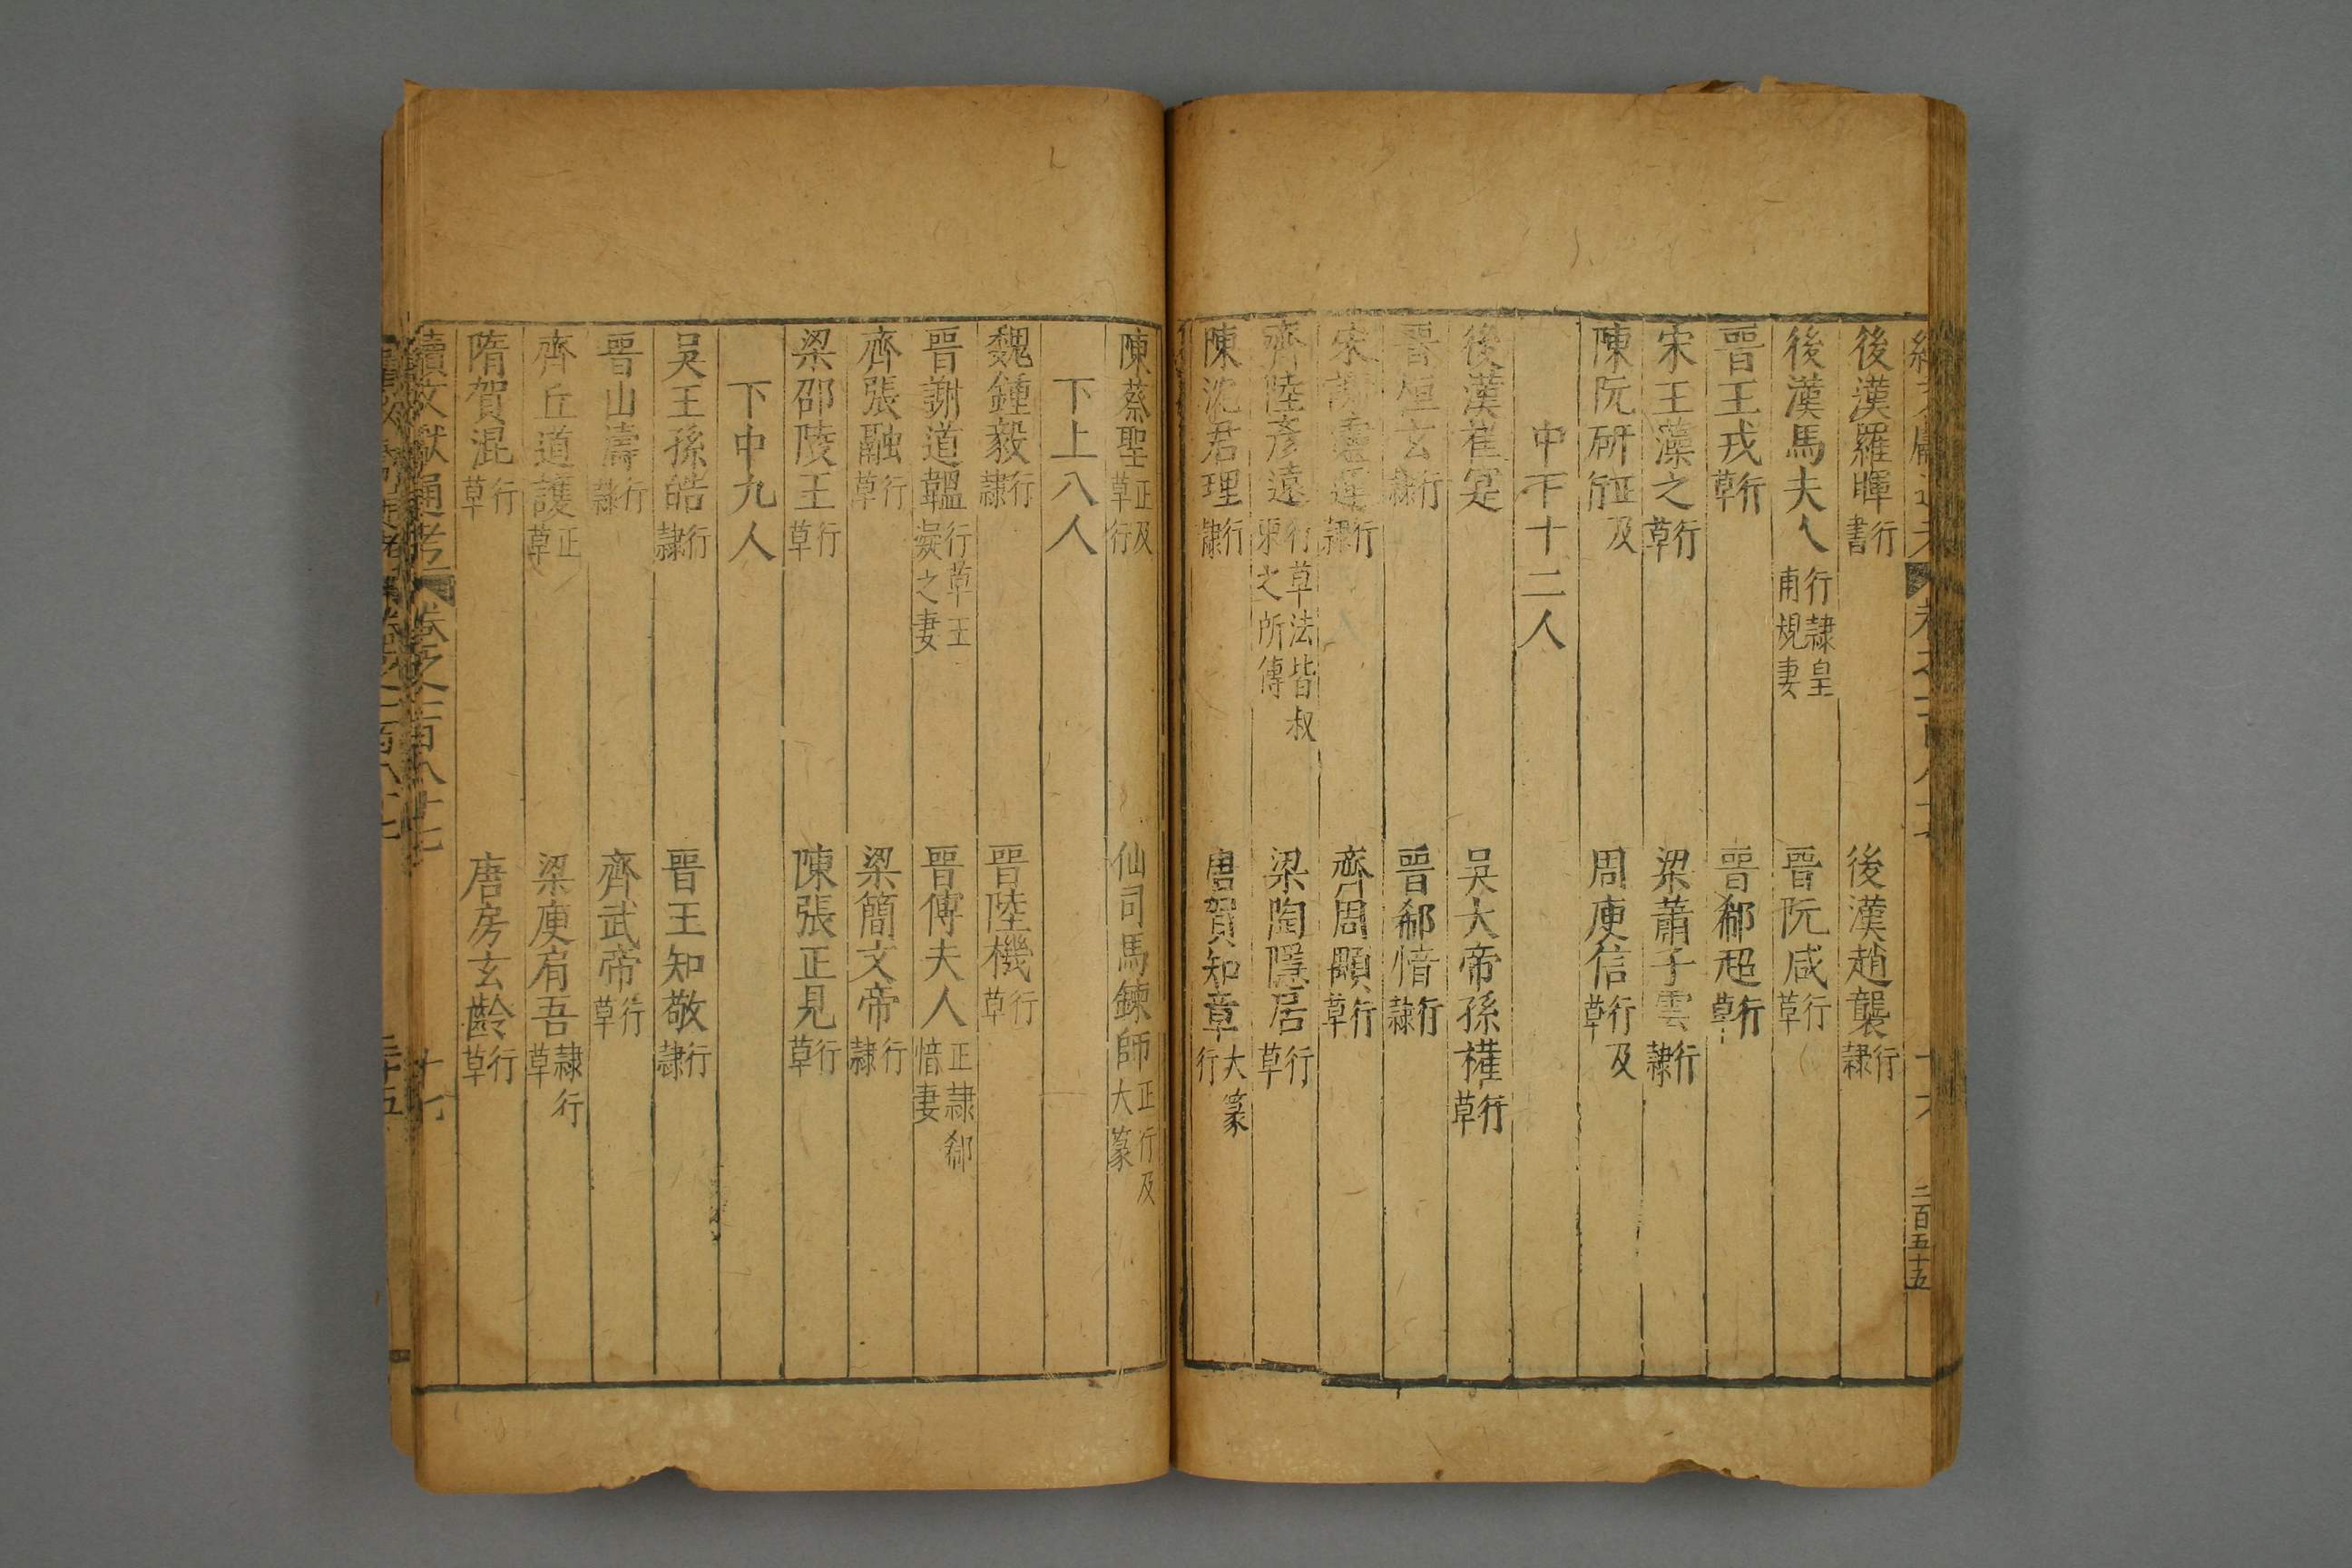 後漢羅暉行書 後漢趙襲行隸
後漢馬夫人行隸皇甫規妻 晉阮咸行草
晉王戎行草 晉郗超行草
宋王藻之行草 梁蕭子雲行隸
陳阮研正及行 周庾信行及草
中下十二人
後漢崔寔 吳大帝孫權行草
晉桓玄行隸 晉郗愔行隸
宋謝靈運行隸 齊周顒行草
齊陸彥遠行草法皆叔東之所傳 梁陶隱居行草
陳沈君理行隸 唐賀知章大篆行
陳蔡聖正及草行 仙司馬鍊師正行及大篆
下上八人
魏鍾毅行隸 晉陸機行草
晉謝道韞行草王凝之妻 晉傅夫人正隸郗愔妻
齊張融行草 梁簡文帝行隸
梁邵陵王行草 陳張正見行草
下中九人
吳王孫皓行隸 晉王知敬行隸
晉山濤行隸 齊武帝行草
齊丘道護正草 梁庾肩吾隸行草
隋賀混行草 唐房玄齡行草
續文獻通考 卷之一百八十七 十七
二百五十五